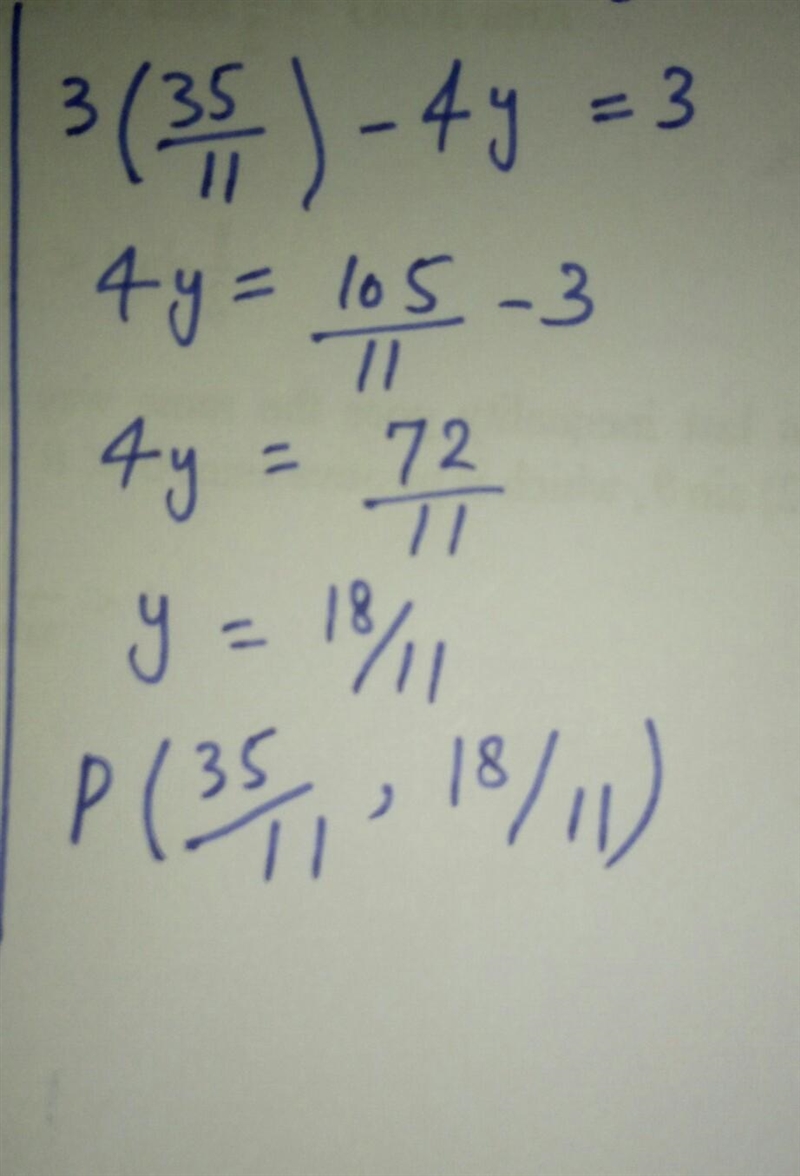 3(35/11) - 4y = 3
4y = 105/11 - 3
4y = 72/11
y = 18/11
P(35/11, 18/11)